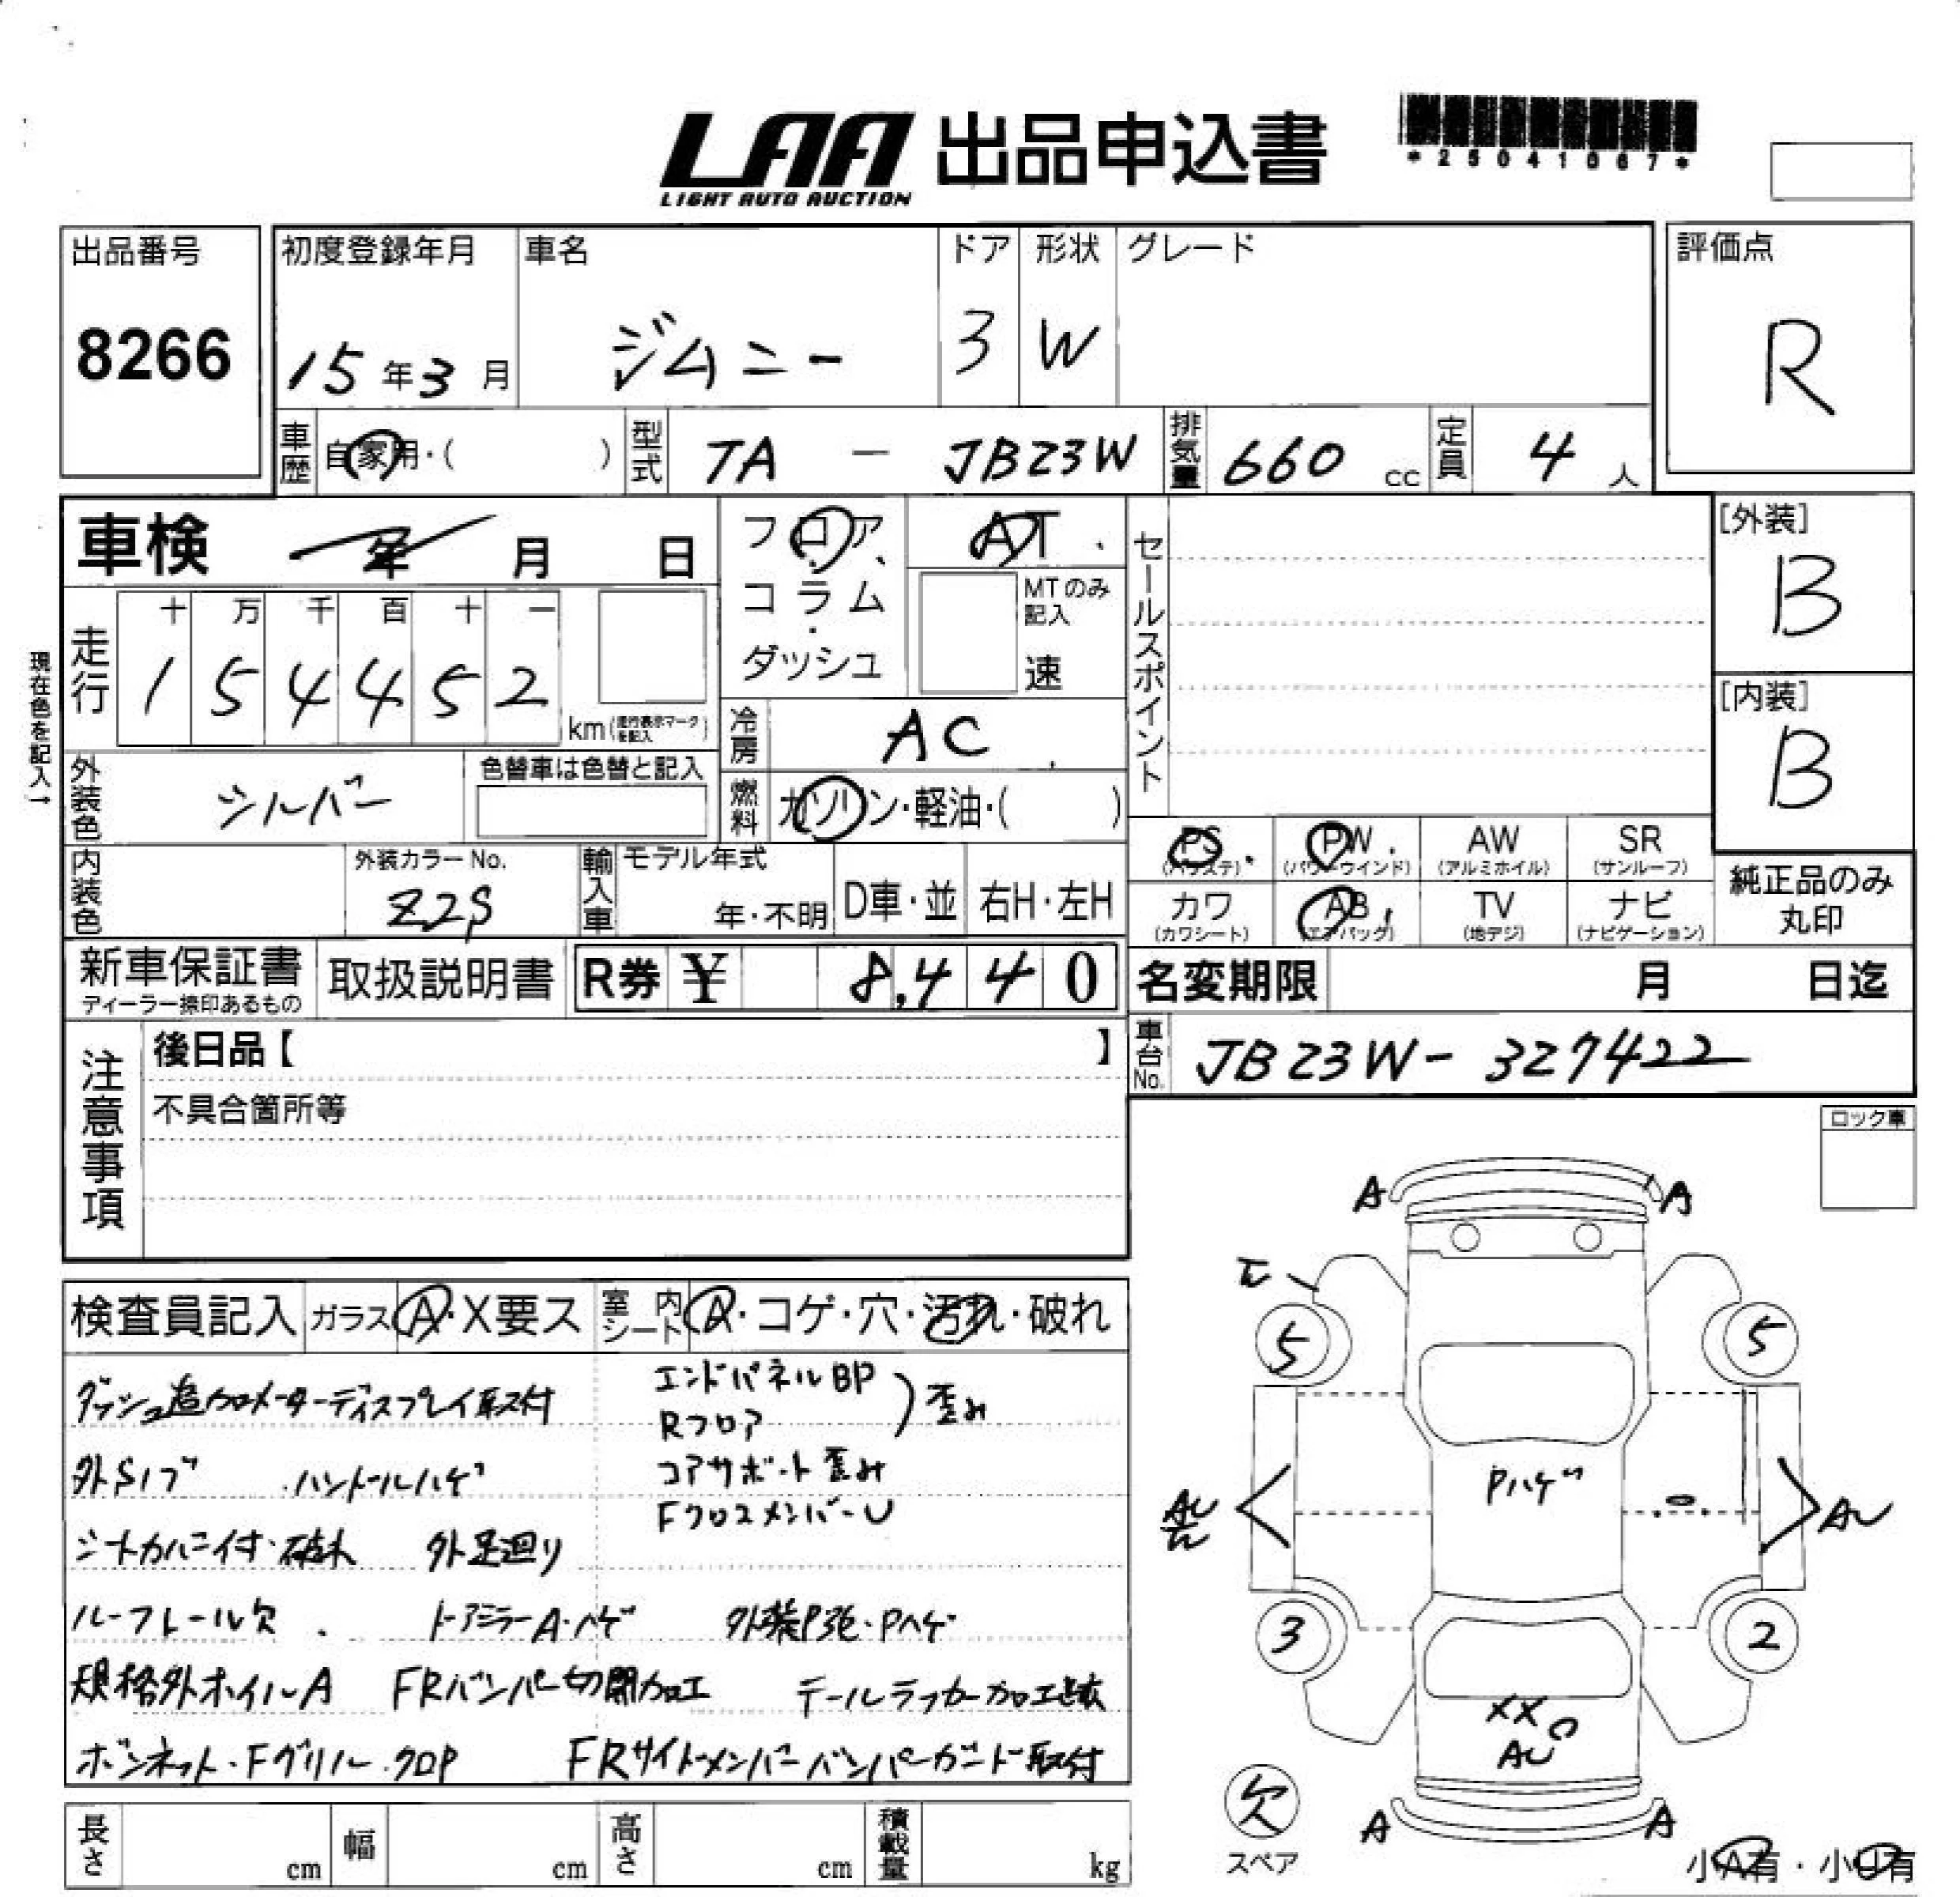 LAA 出品申込書
LIGHT AUTO AUCTION
*25041067*
出品番号
8266
初度登録年月
15年3月
車名
ジムニー
ドア
3
形状
W
グレード
評価点
R
車歴
自家用・( )
型式
TA - JB23W
排気量
660 cc
定員
4 人
車検 年 月 日
フロア・
コラム・
ダッシュ
AT
MTのみ
記入
速
セールスポイント
[外装]
B
[内装]
B
現在色を記入→
走行
十 万 千 百 十 一
1 5 4 4 5 2
km(走行表示マークを記入)
冷房
AC
外装色
シルバー
色替車は色替と記入
燃料
ガソリン・軽油・( )
PS
(パワステ)
PW
(パワーウインド)
AW
(アルミホイル)
SR
(サンルーフ)
カワ
(カワシート)
AB
(エアバッグ)
TV
(地デジ)
ナビ
(ナビゲーション)
純正品のみ
丸印
内装色
外装カラーNo.
Z2S
輸入車
モデル年式
年・不明
D車・並
右H・左H
新車保証書
ディーラー捺印あるもの
取扱説明書
R券 ¥ 8,440
名変期限 月 日迄
車台No.
JB23W-327422
注意事項
後日品【 】
不具合箇所等
ロック車
検査員記入
ガラス A・X要ス
室内
シート
A・コゲ・穴・汚れ・破れ
ダッシュ追加メーターディスプレイ取付
エンドパネルBP
Rフロア
歪み
外Sノブ ハンドルハゲ
コアサポート歪み
FクロスメンバーU
シートカバー付・破れ 外足廻り
ルーフレール欠 ドアミラーA・ハゲ 外装P跡・Pハゲ
規格外ホイルA FRバンパー切開加工 テールランプカバー加工
ボンネット・Fグリル・クロP FRサイドメンバーバンパーガード取付
A A
5 5
AU AU
Pハゲ
3 2
XX
AU
欠
スペア
A A
小A有・小U有
長さ cm
幅 cm
高さ cm
積載量 kg